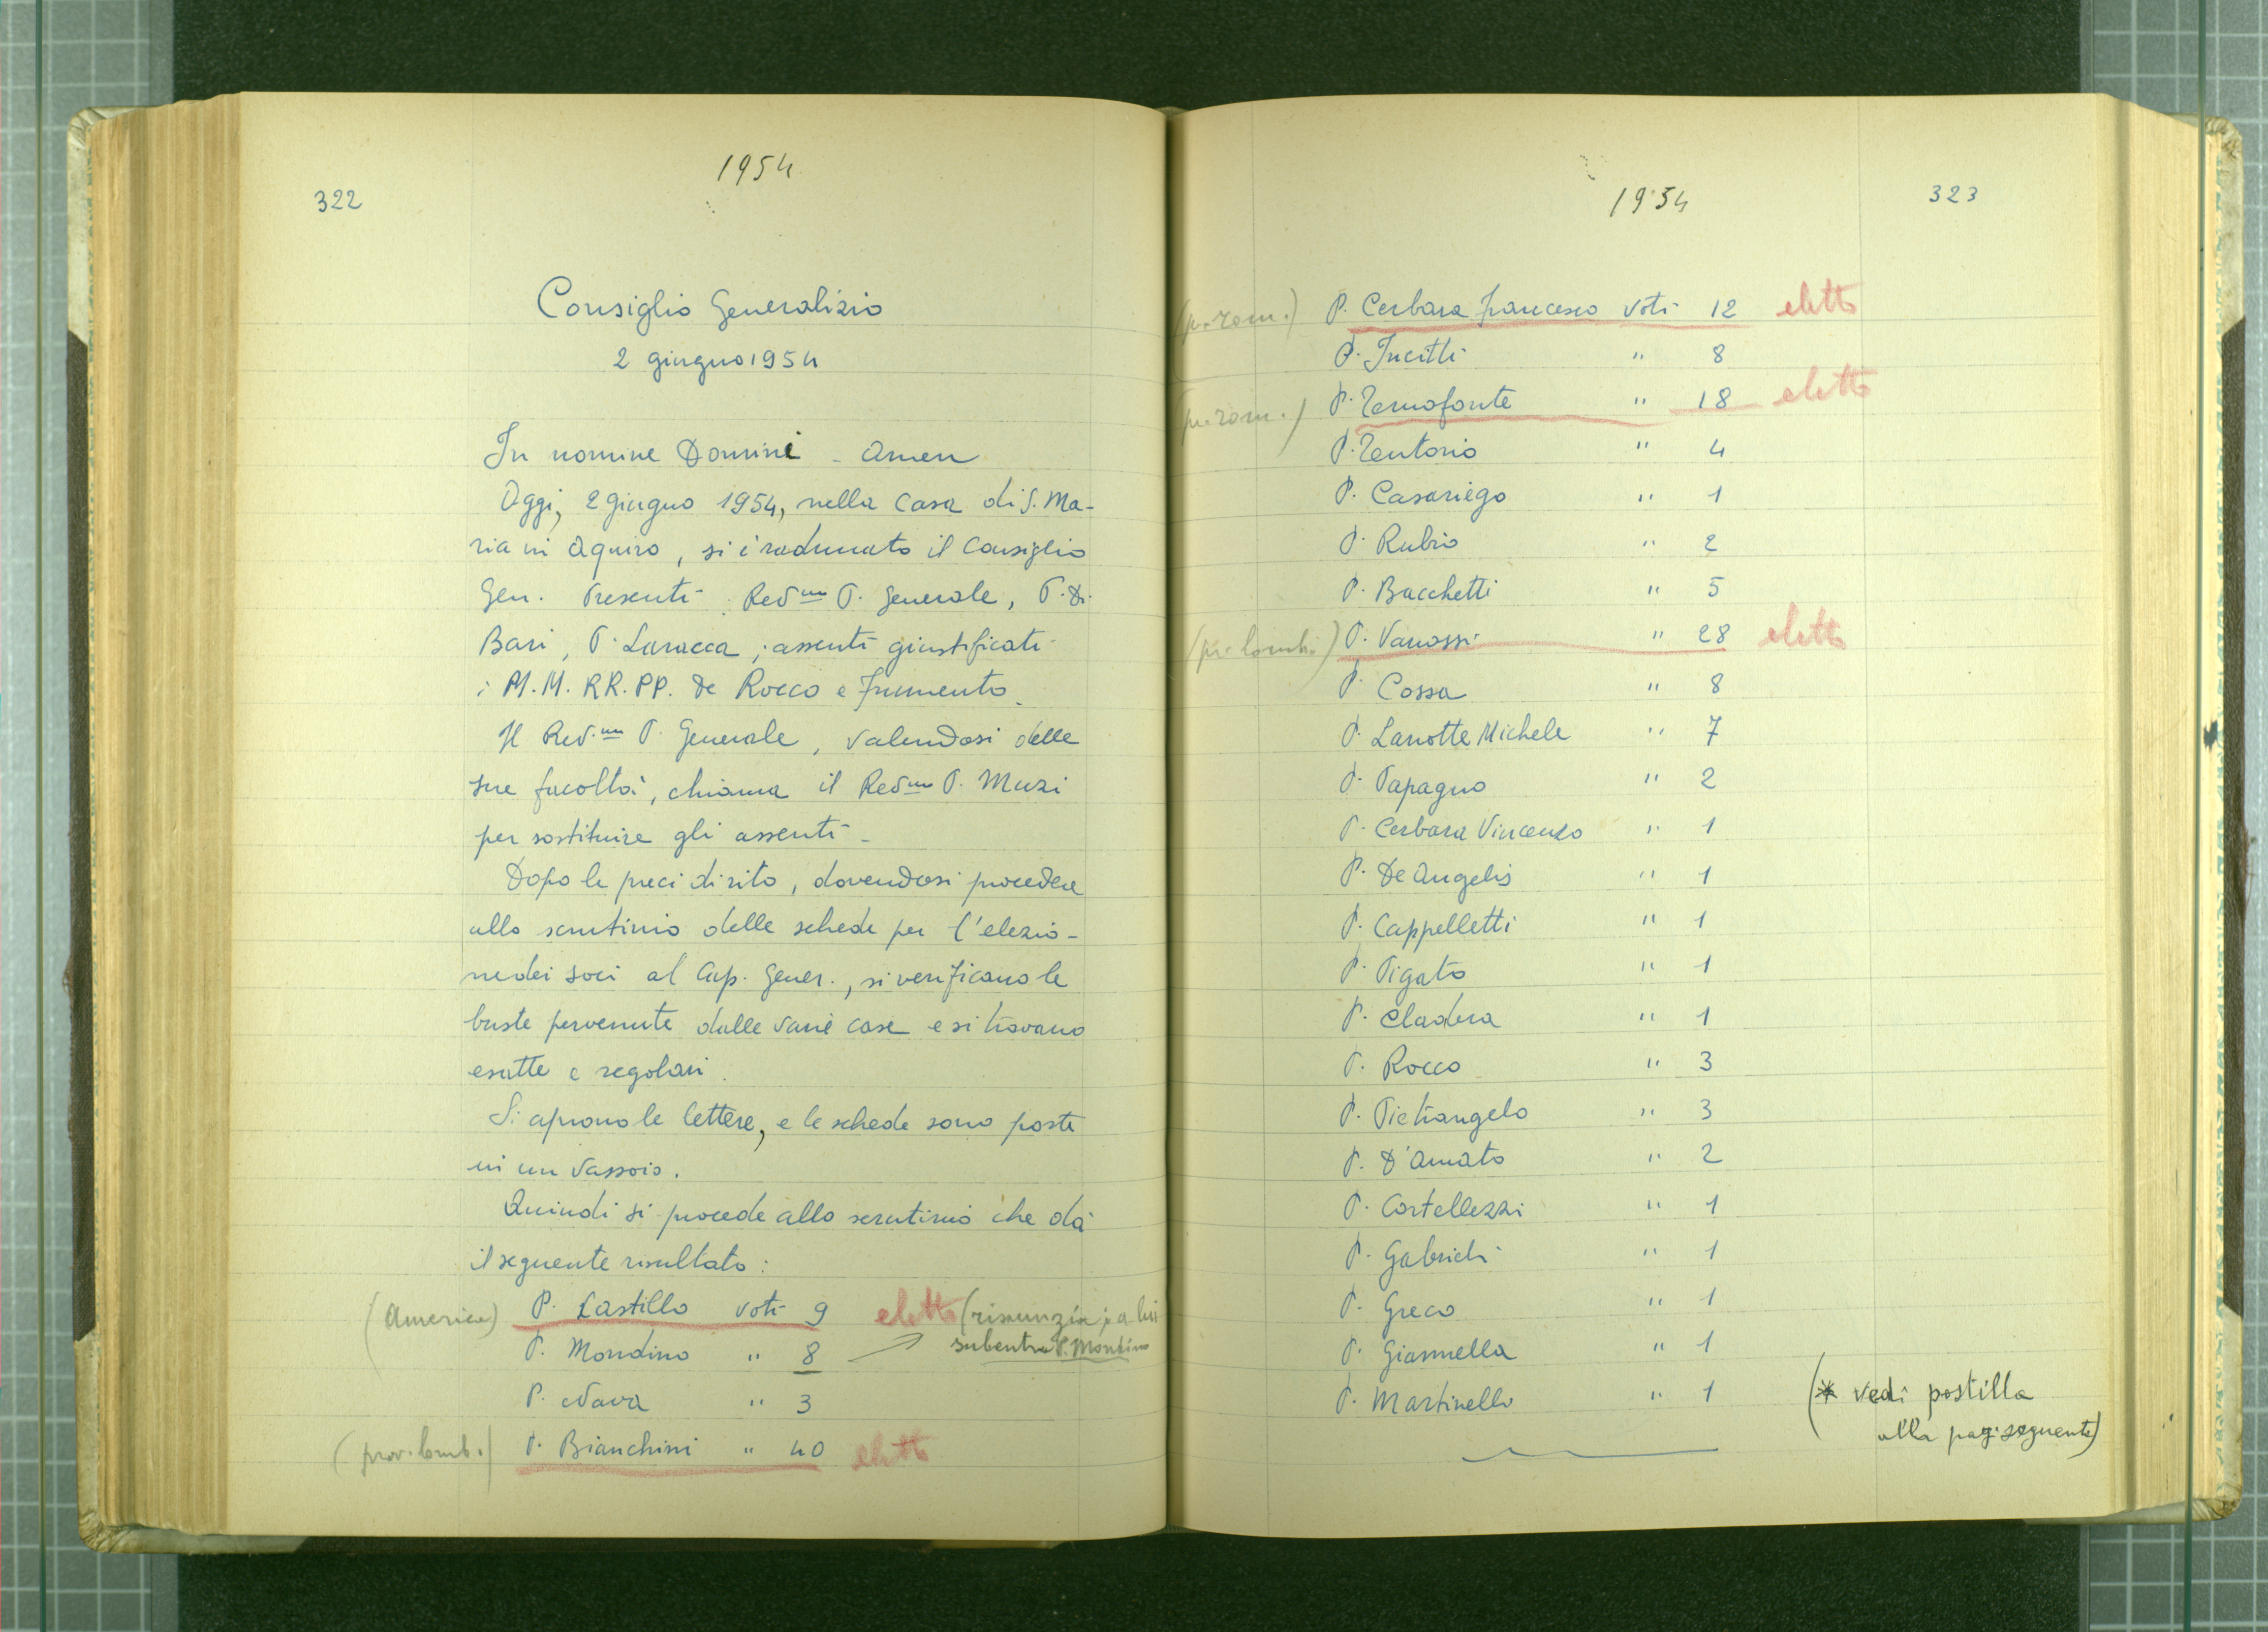 1954
322
Consiglio Generalizio
2 giugno 1954
In nomine Domini - Amen
Oggi, 2 giugno 1954, nella casa di S. Ma-
ria in Aquiro, si è radunato il Consiglio
Gen. Presenti: Rev.mo P. Generale, P. Di
Bari, P. Laracca; assenti giustificati
i M.M. RR. PP. De Rocco e Frumento.
Il Rev.mo P. Generale, valendosi delle
sue facoltà, chiama il Rev.mo P. Muzi
per sostituire gli assenti -
Dopo le preci di rito, dovendosi procedere
allo scrutinio delle schede per l'elezio-
ne dei soci al Cap. Gener., si verificano le
buste pervenute dalle varie case e si trovano
esatte e regolari.
Si aprono le lettere, e le schede sono poste
in un vassoio.
Quindi si procede allo scrutinio che dà
il seguente risultato:
(America) P. Castillo voti 9 eletto (rinunzia; a lui
subentra P. Mondino
P. Mondino " 8
P. Nava " 3
(prov. lomb.) P. Bianchini " 40 eletto
1954
323
(p. rom.) P. Cerbara Francesco voti 12 eletto
P. Incitti " 8
(p. rom.) P. Temofonte " 18 eletto
P. Tentorio " 4
P. Casariego " 1
P. Rubio " 2
P. Bacchetti " 5
(pr. lomb.) P. Vanossi " 28 eletto
P. Cossa " 8
P. Lanotte Michele " 7
P. Papagno " 2
P. Cerbara Vincenzo " 1
P. De Angelis " 1
P. Cappelletti " 1
P. Pigato " 1
P. Cladera " 1
P. Rocco " 3
P. Pietrangelo " 3
P. D'Amato " 2
P. Cortellezzi " 1
P. Gabrieli " 1
P. Greco " 1
P. Giannella " 1
P. Martinello " 1
(* vedi postilla
alla pag. seguente)